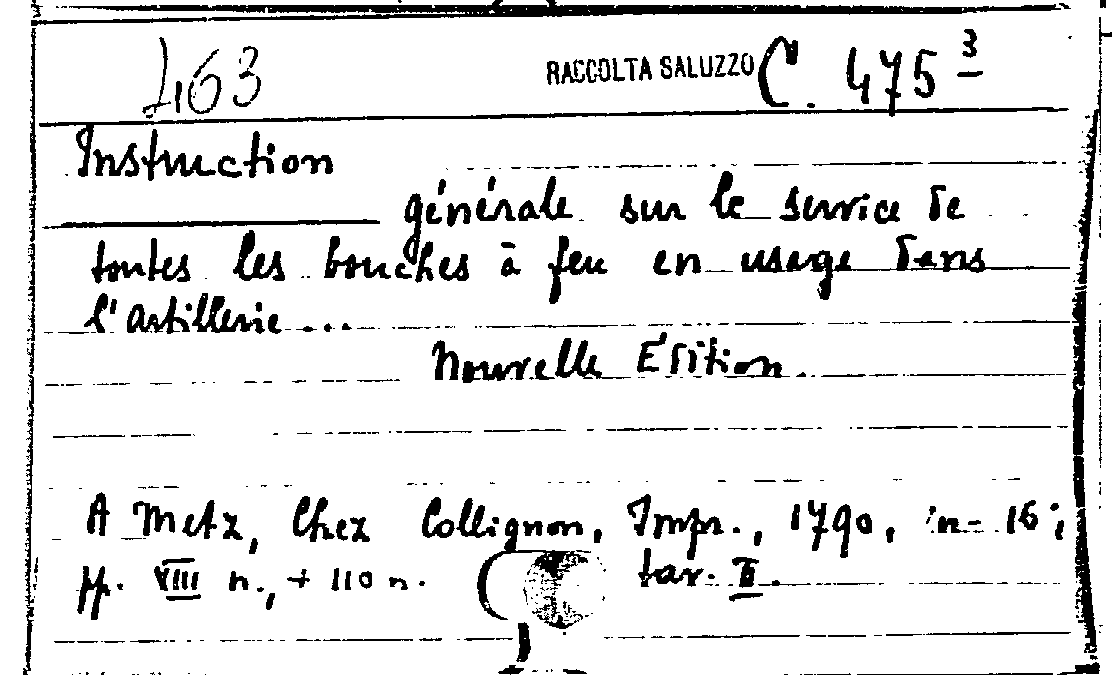 463 RACCOLTA SALUZZO C. 475 3
Instruction
générale sur le service de
toutes les bouches à feu en usage dans
l'artillerie...
Nouvelle Edition.
A Metz, Chez Collignon, Impr., 1790, in-16;
pp. VIII n., + 110 n. tav. II.